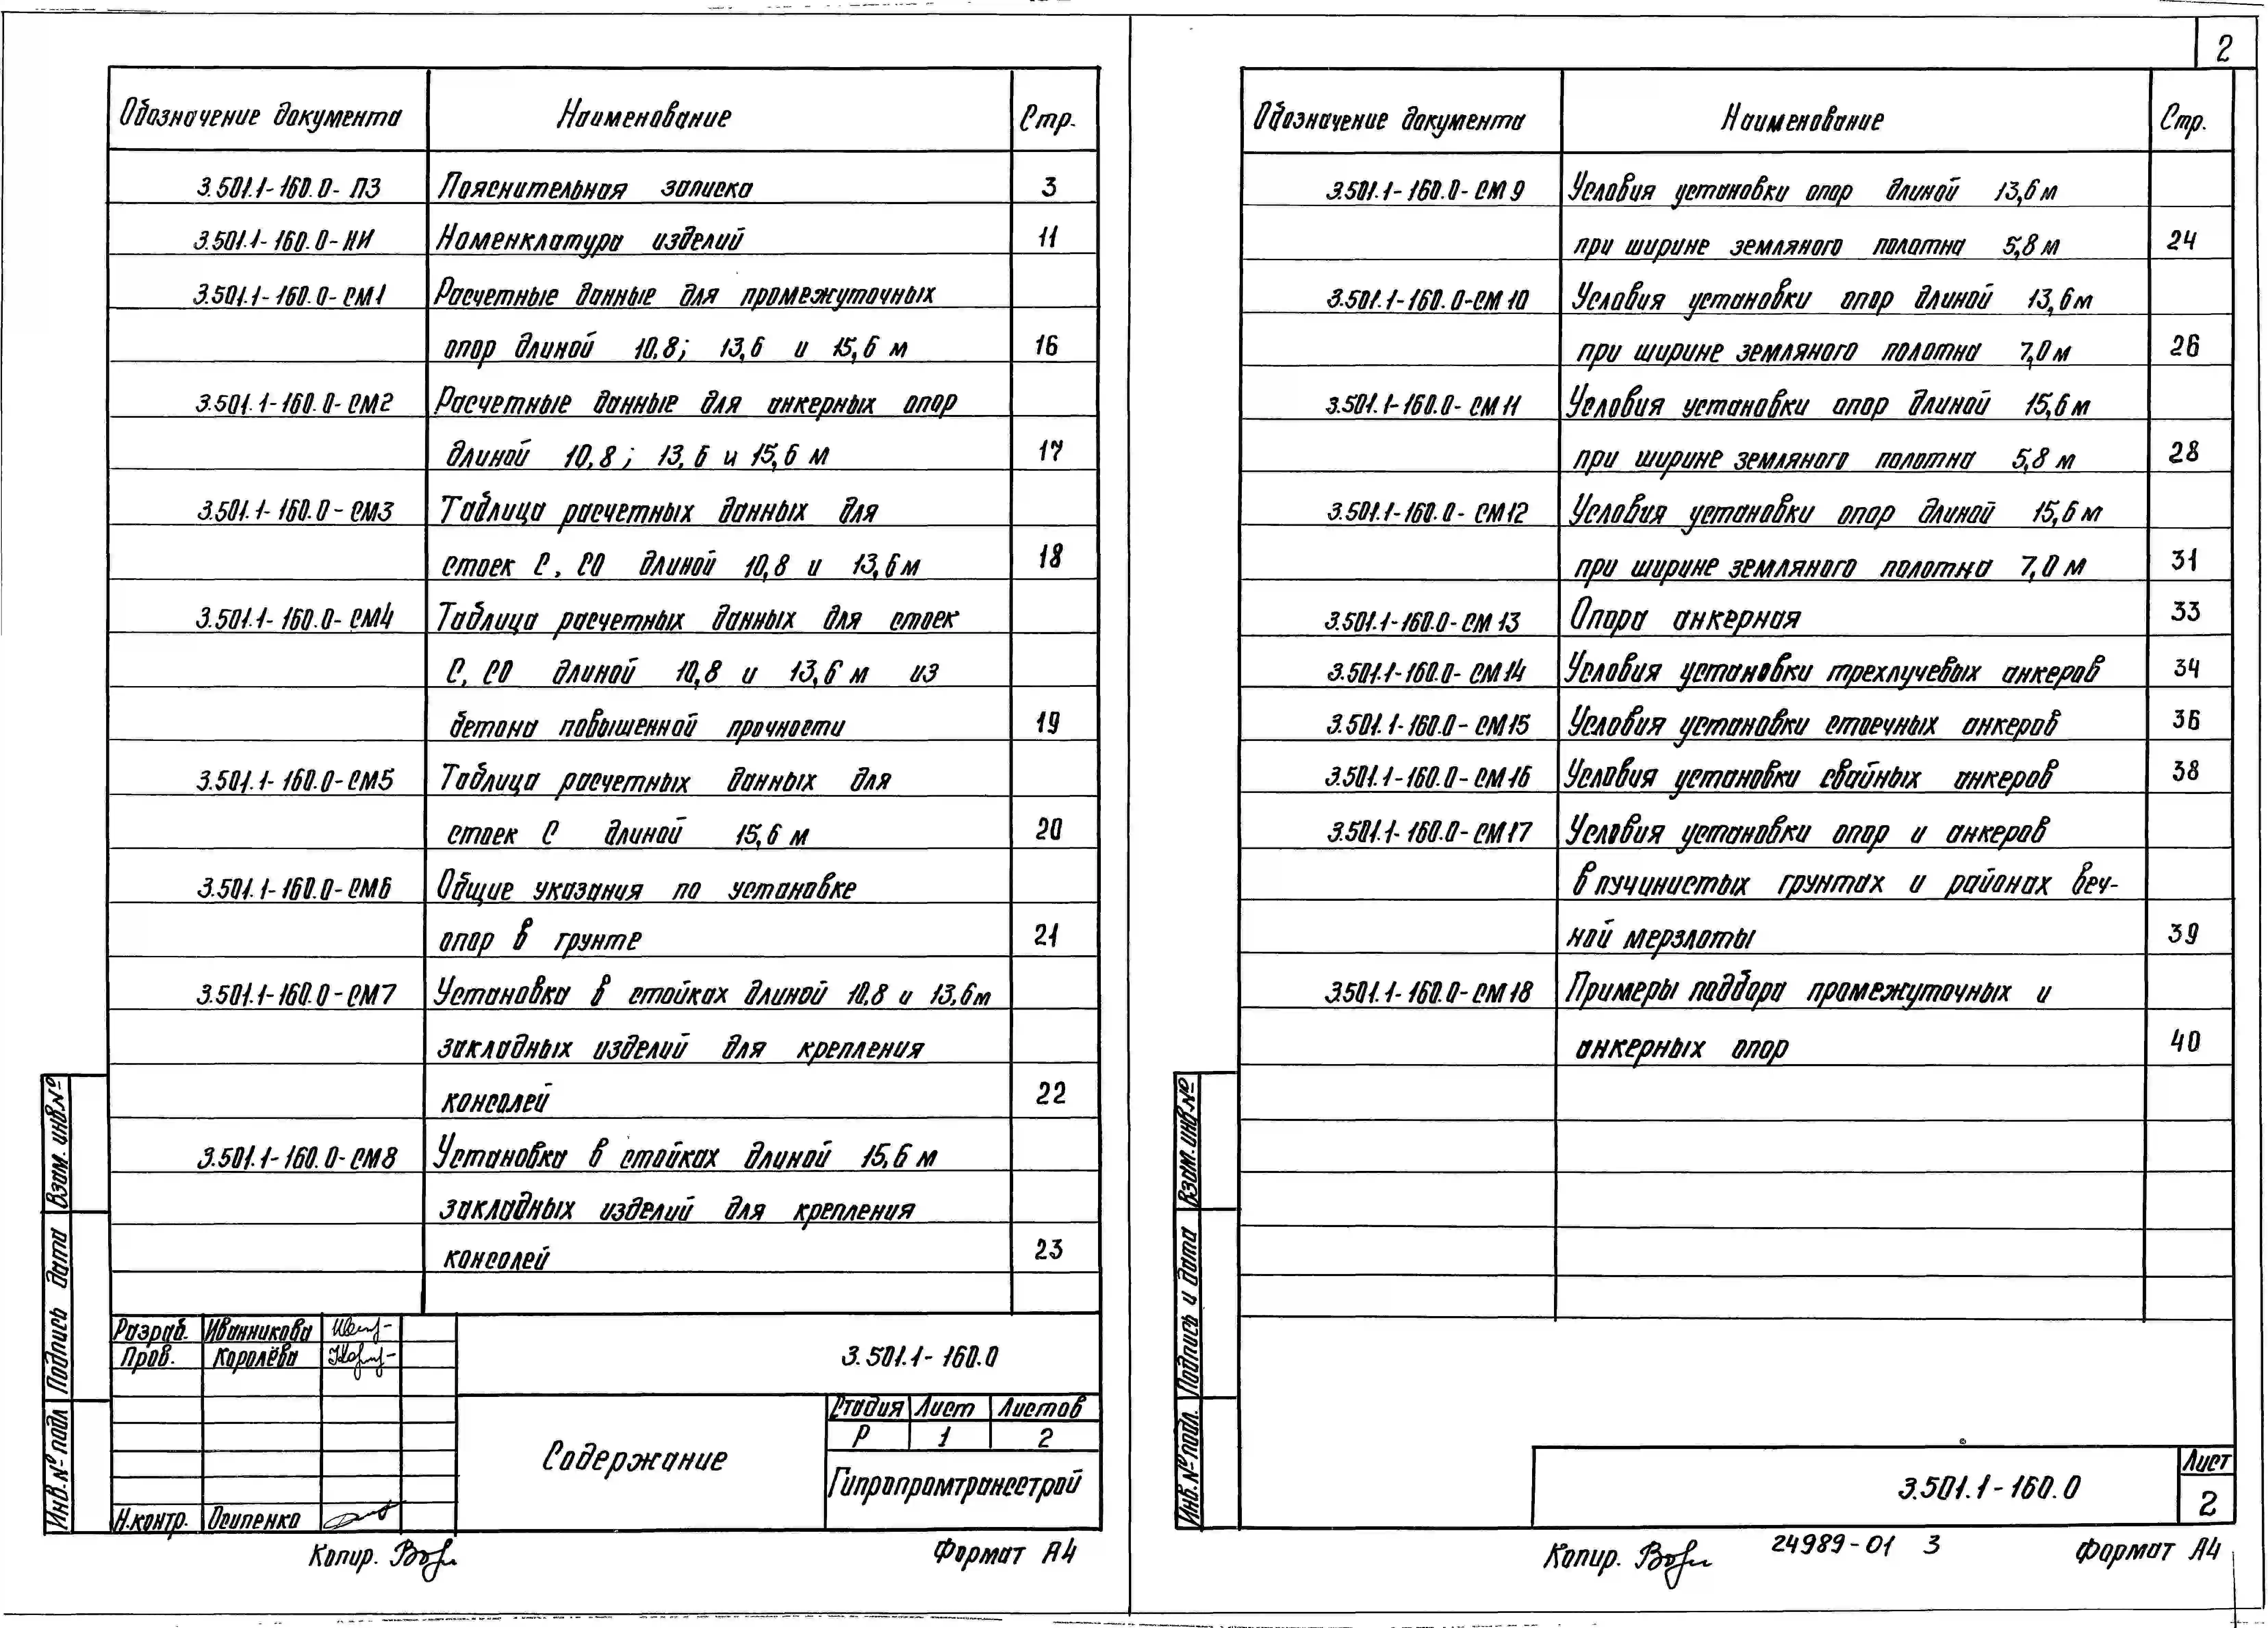 2
Обозначение документа Наименование Стр.
3.501.1-160.0-ПЗ Пояснительная записка 3
3.501.1-160.0-НИ Номенклатура изделий 11
3.501.1-160.0-СМ1 Расчетные данные для промежуточных
опор длиной 10,8; 13,6 и 15,6 м 16
3.501.1-160.0-СМ2 Расчетные данные для анкерных опор
длиной 10,8; 13,6 и 15,6 м 17
3.501.1-160.0-СМ3 Таблица расчетных данных для
стоек С, СО длиной 10,8 и 13,6 м 18
3.501.1-160.0-СМ4 Таблица расчетных данных для стоек
С, СО длиной 10,8 и 13,6 м из
бетона повышенной прочности 19
3.501.1-160.0-СМ5 Таблица расчетных данных для
стоек С длиной 15,6 м 20
3.501.1-160.0-СМ6 Общие указания по установке
опор в грунте 21
3.501.1-160.0-СМ7 Установка в стойках длиной 10,8 и 13,6м
закладных изделий для крепления
консолей 22
3.501.1-160.0-СМ8 Установка в стойках длиной 15,6 м
закладных изделий для крепления
консолей 23
Разраб. Иванникова
Пров. Королёва
Н.контр. Осипенко
3.501.1-160.0
Содержание
Стадия Лист Листов
Р 1 2
Гипропромтрансстрой
Взам. инв.№
Подпись дата
Инв.№ подл
Копир.
Формат А4
Обозначение документа Наименование Стр.
3.501.1-160.0-СМ9 Условия установки опор длиной 13,6 м
при ширине земляного полотна 5,8 м 24
3.501.1-160.0-СМ10 Условия установки опор длиной 13,6м
при ширине земляного полотна 7,0 м 26
3.501.1-160.0-СМ11 Условия установки опор длиной 15,6 м
при ширине земляного полотна 5,8 м 28
3.501.1-160.0-СМ12 Условия установки опор длиной 15,6 м
при ширине земляного полотна 7,0 м 31
3.501.1-160.0-СМ13 Опора анкерная 33
3.501.1-160.0-СМ14 Условия установки трехлучевых анкеров 34
3.501.1-160.0-СМ15 Условия установки стоечных анкеров 36
3.501.1-160.0-СМ16 Условия установки свайных анкеров 38
3.501.1-160.0-СМ17 Условия установки опор и анкеров
в пучинистых грунтах и районах веч-
ной мерзлоты 39
3.501.1-160.0-СМ18 Примеры подбора промежуточных и
анкерных опор 40
Взам.инв.№
Подпись и дата
Инв.№ подл.
3.501.1-160.0
Лист
2
Копир.
24989-01 3
Формат А4